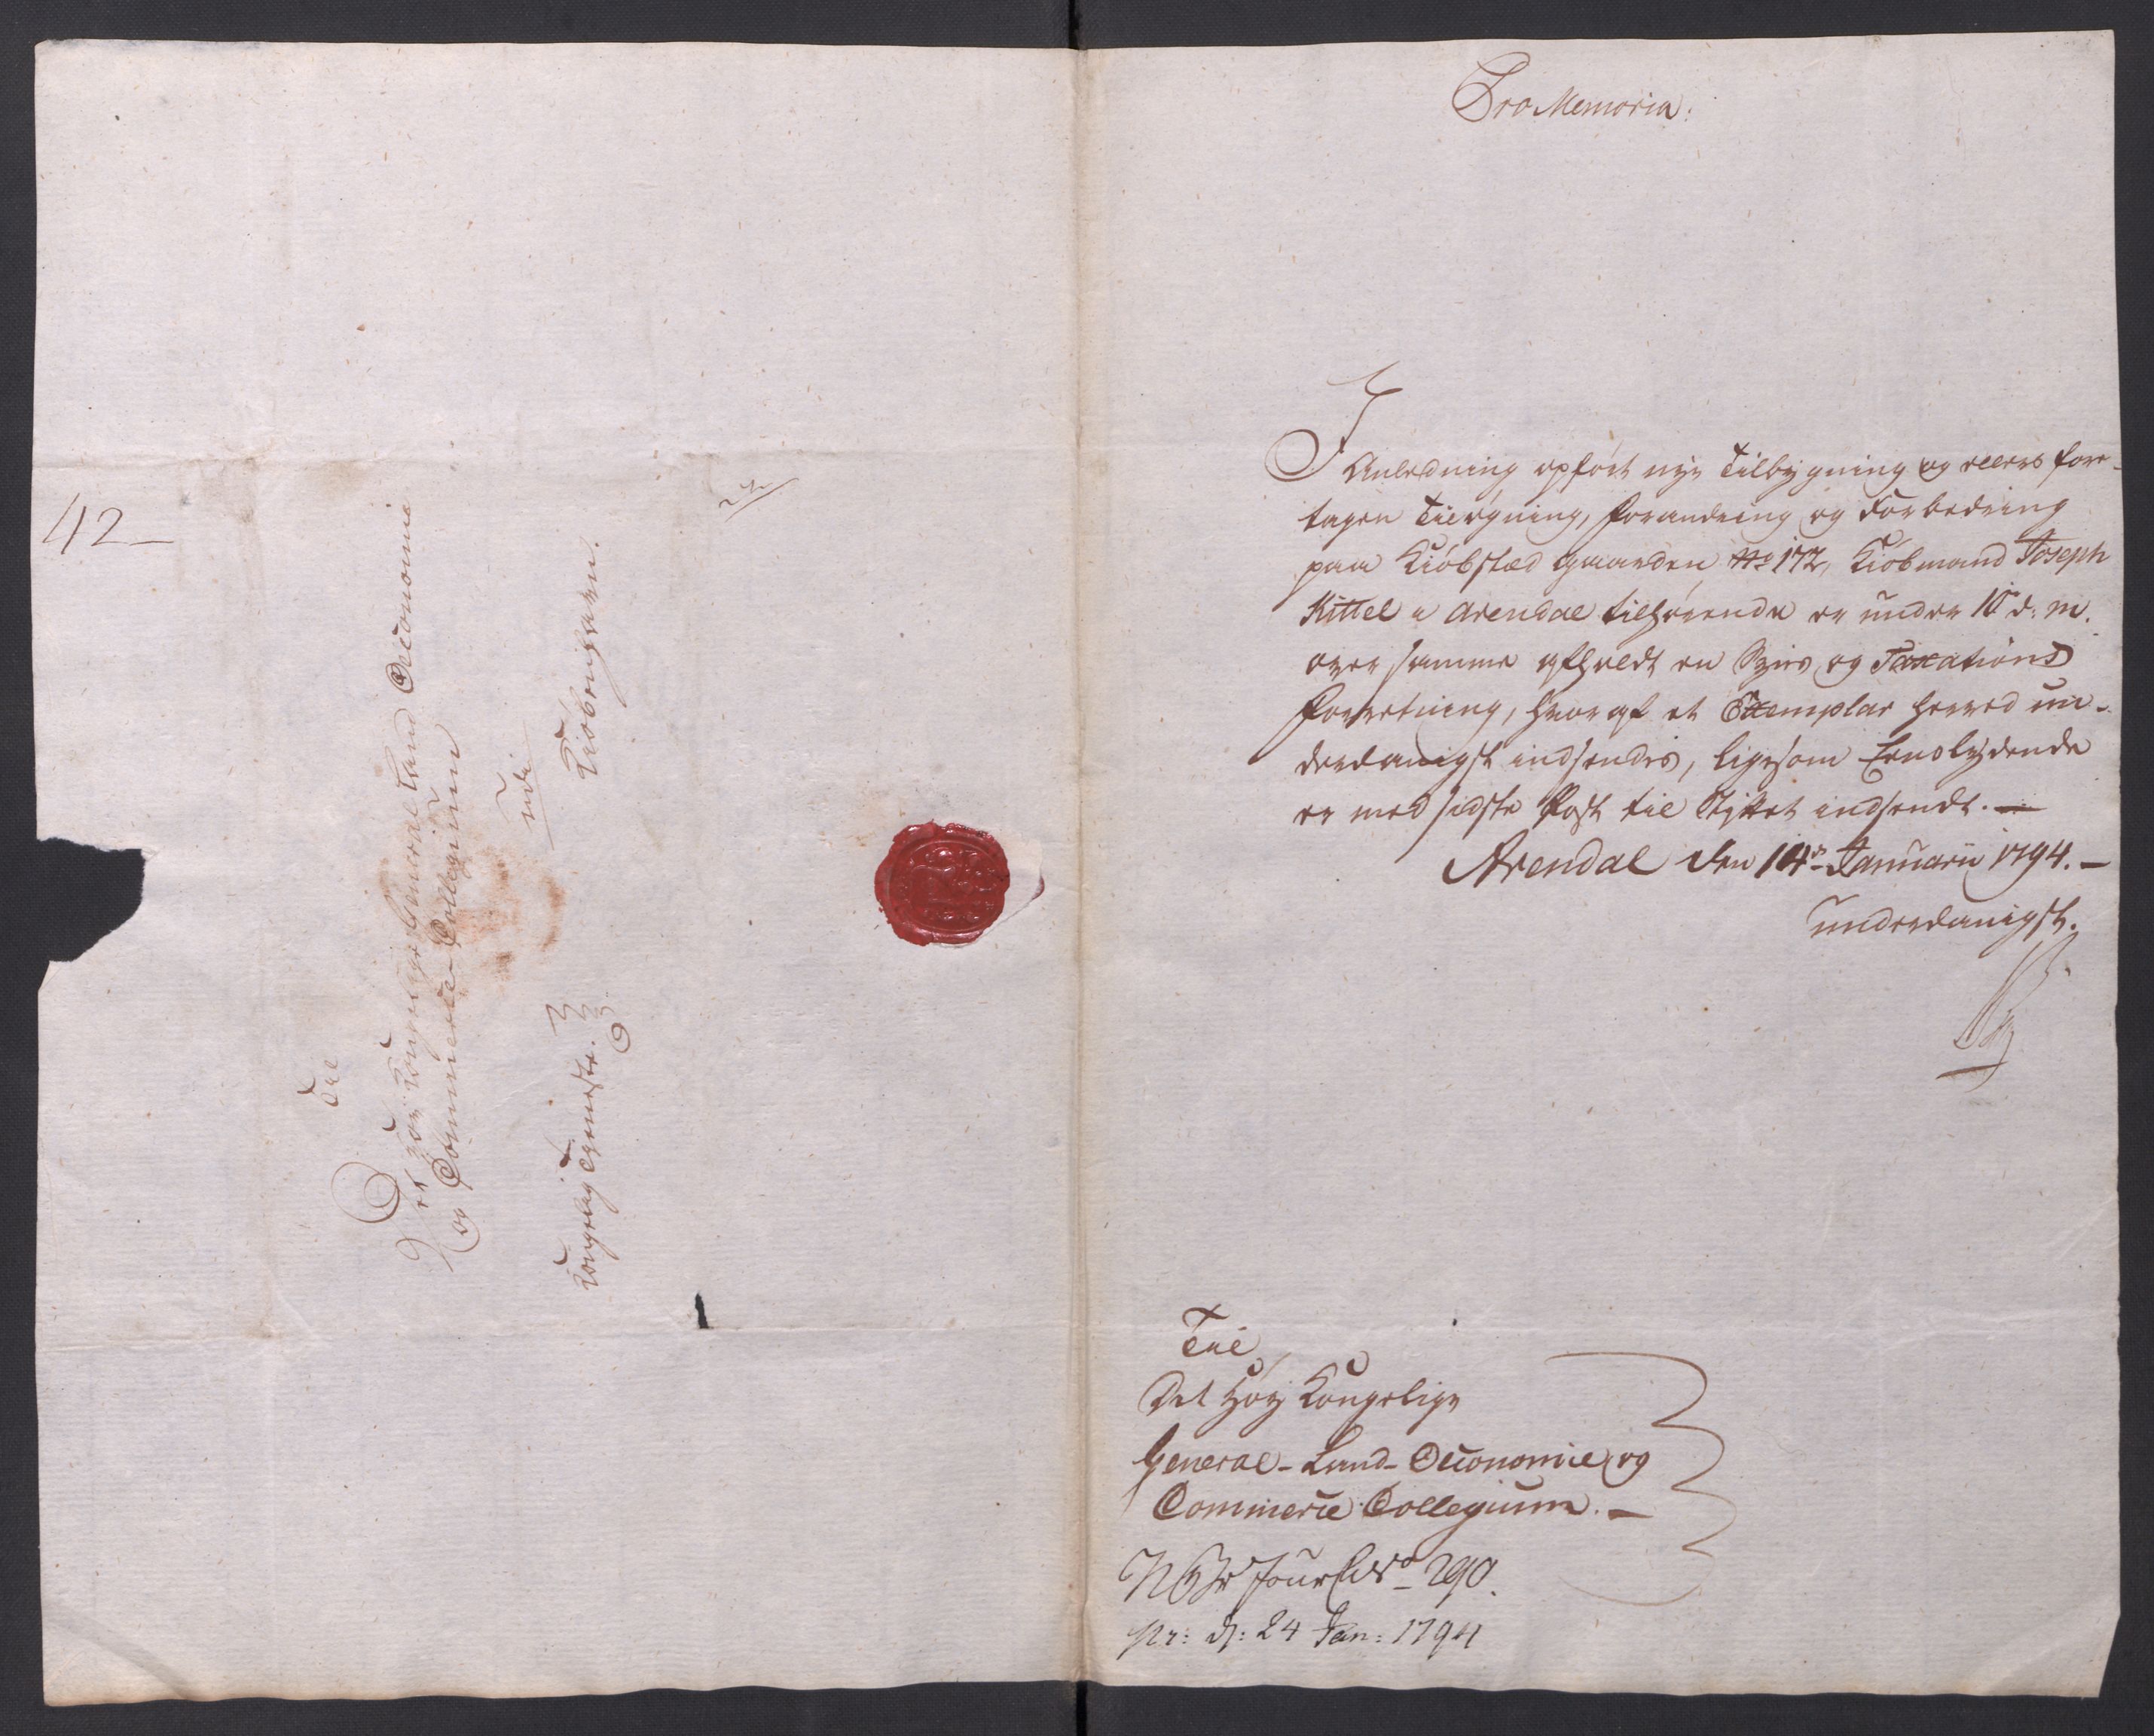 42
Til
Det Høy Kongelige General Land Oeconomie
og Commerce-Collegium
udi
Kiøbenhavn.
Kongelig Tieneste.
Pro Memoria:
I Anledning opført nye Tilbygning og ellers fore-
tagen Tiløgning, forandring og Forbedring
paa Kiøbstæd gaarden No 172, Kiøbmand Joseph
Kittel i Arendal tilhørende er under 10de d: M.
over samme afholdt en Syns og Taxations
forretning, hvoraf et Exemplar herved un-
derdanigst indsendes, ligesom Eenslydende
er med sidste Post til Stiftet indsendt. —
Arendal den 14de Januarii 1794. —
underdanigst.
Til
Det Høy Kongelige
General-Land-Oeconomie og
Commerce Collegium. —
Jour No 290.
pr: d: 24 Jan: 1794